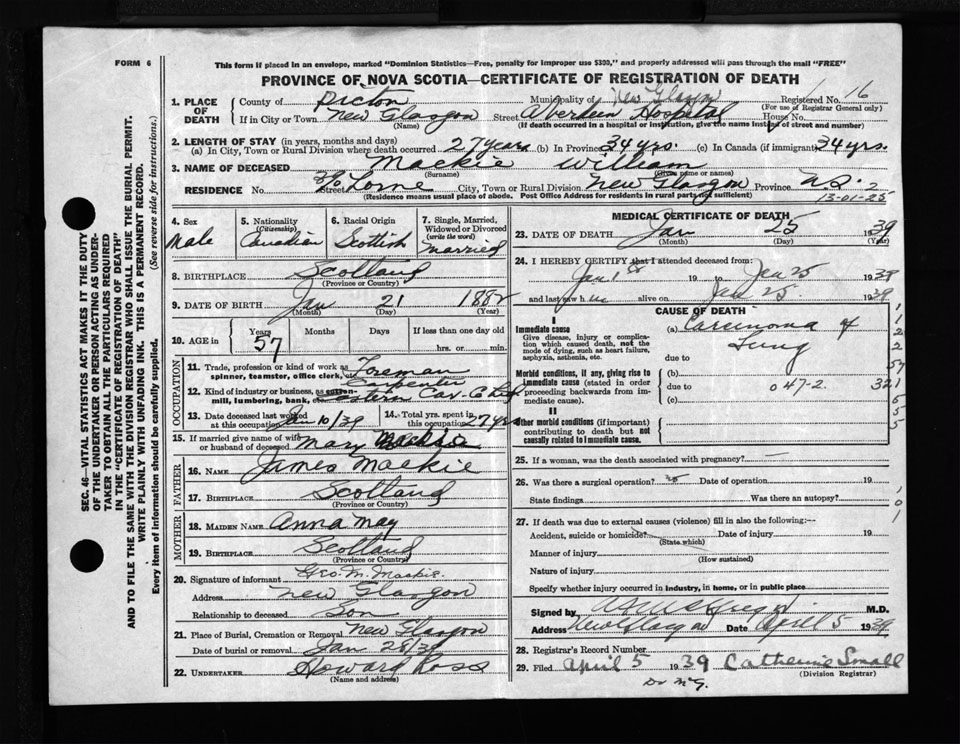 FORM 6
This form if placed in an envelope, marked "Dominion Statistics—Free, penalty for improper use $300," and properly addressed will pass through the mail "FREE"
PROVINCE OF NOVA SCOTIA—CERTIFICATE OF REGISTRATION OF DEATH
SEC. 46—VITAL STATISTICS ACT MAKES IT THE DUTY
OF THE UNDERTAKER OR PERSON ACTING AS UNDER-
TAKER TO OBTAIN ALL THE PARTICULARS REQUIRED
IN THE "CERTIFICATE OF REGISTRATION OF DEATH"
AND TO FILE THE SAME WITH THE DIVISION REGISTRAR WHO SHALL ISSUE THE BURIAL PERMIT.
WRITE PLAINLY WITH UNFADING INK. THIS IS A PERMANENT RECORD.
Every item of information should be carefully supplied. (See reverse side for instructions.)
1. PLACE OF DEATH
County of Pictou Municipality of New Glasgow Registered No. 16
(For use of Registrar General only)
If in City or Town New Glasgow Street Aberdeen Hospital House No.
(Name) (If death occurred in a hospital or institution, give the name instead of street and number)
2. LENGTH OF STAY (in years, months and days)
(a) In City, Town or Rural Division where death occurred 27 years (b) In Province 34 yrs. (c) In Canada (if immigrant) 34 yrs.
3. NAME OF DECEASED Mackie William
(Surname) (Given name or names)
RESIDENCE No. Street Lorne City, Town or Rural Division New Glasgow Province N.S. 2
(Residence means usual place of abode. Post Office Address for residents in rural parts not sufficient) 13-01-25
4. Sex Male
5. Nationality (Citizenship) Canadian
6. Racial Origin Scottish
7. Single, Married, Widowed or Divorced (write the word) Married
8. BIRTHPLACE Scotland
(Province or Country)
9. DATE OF BIRTH Jan 21 1882
(Month) (Day) (Year)
10. AGE in Years 57 Months Days If less than one day old hrs. or min.
OCCUPATION
11. Trade, profession or kind of work as spinner, teamster, office clerk, etc. Foreman Carpenter
12. Kind of industry or business, as cotton mill, lumbering, bank, etc. Eastern Car
13. Date deceased last worked at this occupation Jan 10/39 14. Total yrs. spent in this occupation 27 yrs
15. If married give name of wife or husband of deceased Mary Mackie
FATHER
16. NAME James Mackie
17. BIRTHPLACE Scotland
(Province or Country)
MOTHER
18. MAIDEN NAME Anna May
19. BIRTHPLACE Scotland
(Province or Country)
20. Signature of informant Geo. M. Mackie.
Address New Glasgow
Relationship to deceased Son
21. Place of Burial, Cremation or Removal New Glasgow
Date of burial or removal Jan 28/39
22. UNDERTAKER Howard Ross
(Name and address)
MEDICAL CERTIFICATE OF DEATH
23. DATE OF DEATH Jan 25 1939
(Month) (Day) (Year)
24. I HEREBY CERTIFY that I attended deceased from:
Jan 1st 19 to Jan 25 1939
and last saw him alive on Jan 25 1939
CAUSE OF DEATH
I
Immediate cause
Give disease, injury or complication which caused death, not the mode of dying, such as heart failure, asphyxia, asthenia, etc.
(a) Carcinoma of Lung
due to
Morbid conditions, if any, giving rise to immediate cause (stated in order proceeding backwards from immediate cause)
(b)
due to 047-2.
(c)
II
Other morbid conditions (if important) contributing to death but not causally related to immediate cause.
1
2
2
57
321
6
5
5
25. If a woman, was the death associated with pregnancy? —
26. Was there a surgical operation? no Date of operation 19
State findings Was there an autopsy?
1
0
1
27. If death was due to external causes (violence) fill in also the following:—
Accident, suicide or homicide? Date of injury 19
(State which)
Manner of injury
(How sustained)
Nature of injury
Specify whether injury occurred in industry, in home, or in public place
Signed by M.D.
Address New Glasgow Date April 5 1939
28. Registrar's Record Number
29. Filed April 5 1939 Catherine Small
(Division Registrar)
Dr McG.